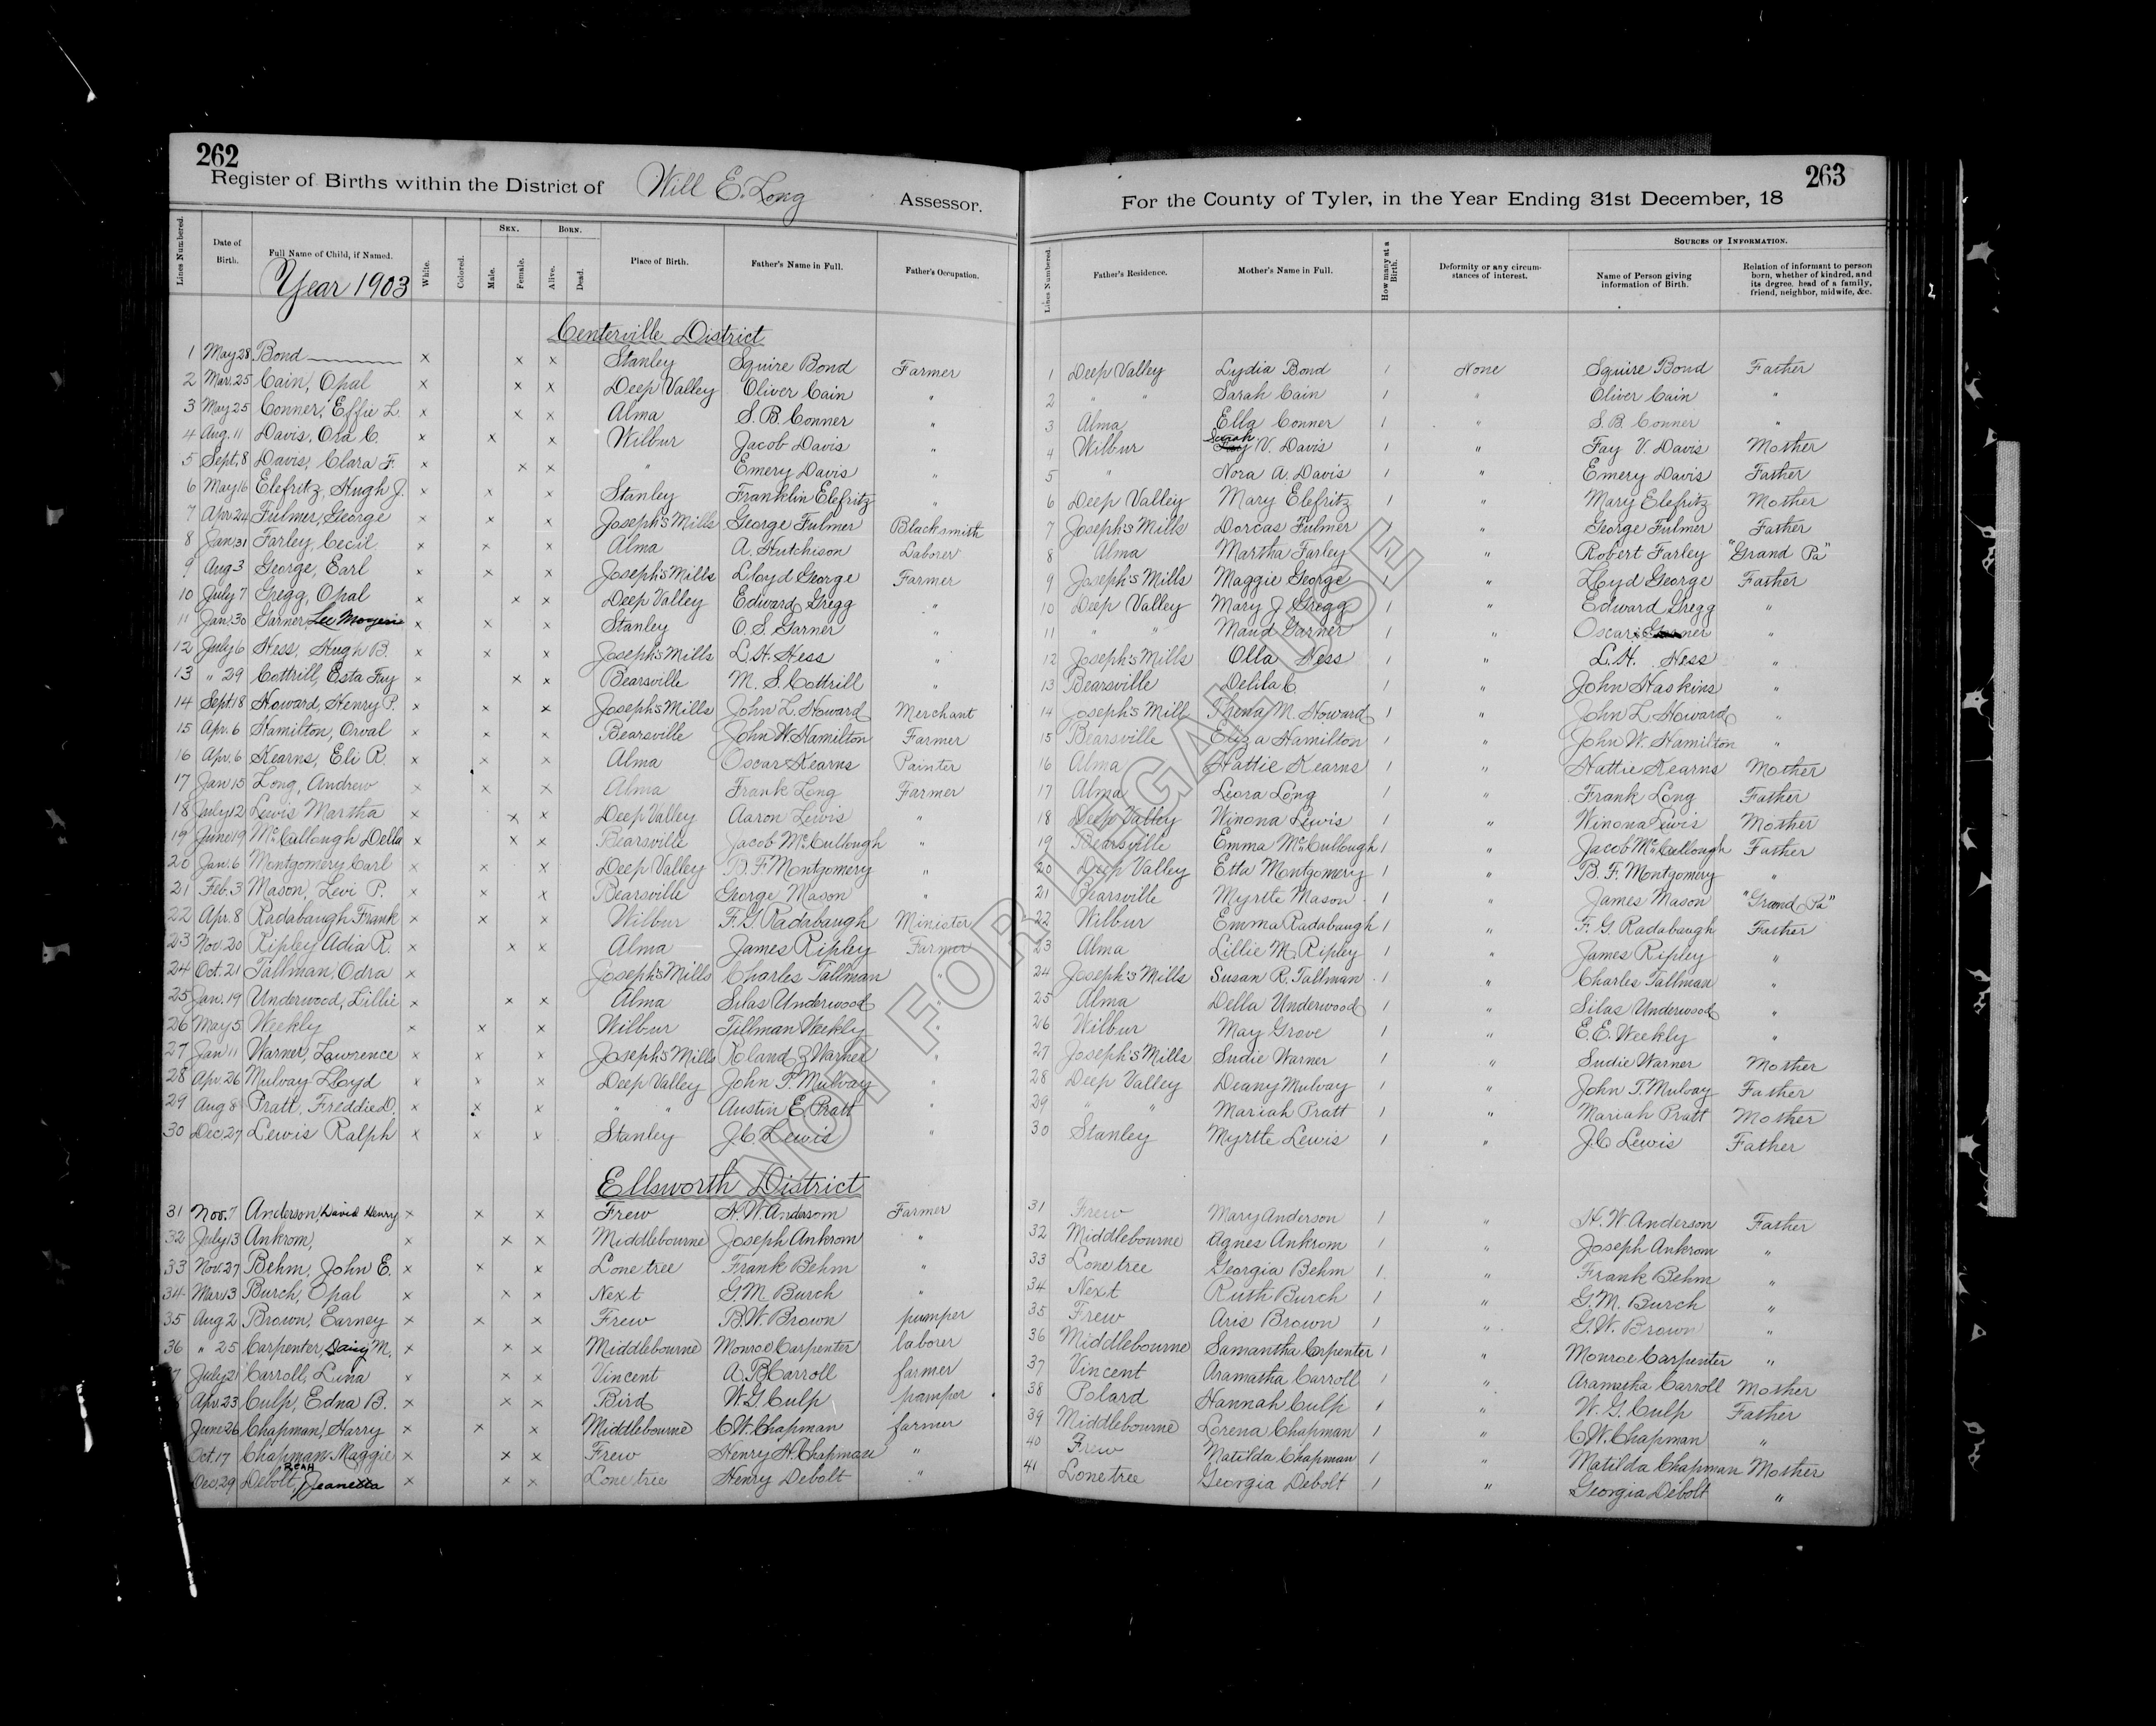 262
Register of Births within the District of Will E. Long Assessor.
Lines Numbered. Date of Birth. Full Name of Child, if Named. White. Colored. Sex. Male. Female. Born. Alive. Dead. Place of Birth. Father's Name in Full. Father's Occupation.
Year 1903
Centerville District
1 May 28 Bond x x x Stanley Squire Bond Farmer
2 Mar. 25 Cain, Opal x x x Deep Valley Oliver Cain "
3 May 25 Conner, Effie L. x x x Alma S. B. Conner "
4 Aug. 11 Davis, Ora C. x x x Wilbur Jacob Davis "
5 Sept. 8 Davis, Clara F. x x x " Emery Davis "
6 May 16 Elefritz, Hugh J. x x x Stanley Franklin Elefritz "
7 Apr. 24 Fulmer, George x x x Joseph's Mills George Fulmer Blacksmith
8 Jan. 31 Farley, Cecil x x x Alma A. Hutchison Laborer
9 Aug 3 George, Earl x x x Joseph's Mills Lloyd George Farmer
10 July 7 Gregg, Opal x x x Deep Valley Edward Gregg "
11 Jan. 30 Garner, Lee x x x Stanley O. S. Garner "
12 July 6 Hess, Hugh B. x x x Joseph's Mills L. H. Hess "
13 " 29 Cottrill, Esta Fay x x x Bearsville M. S. Cottrill "
14 Sept. 18 Howard, Henry P. x x x Joseph's Mills John L. Howard Merchant
15 Apr. 6 Hamilton, Orval x x x Bearsville John W Hamilton Farmer
16 Apr. 6 Kearns, Eli R. x x x Alma Oscar Kearns Painter
17 Jan 15 Long, Andrew x x x Alma Frank Long Farmer
18 July 12 Lewis Martha x x x Deep Valley Aaron Lewis "
19 June 19 McCullough Della x x x Bearsville Jacob McCullough "
20 Jan. 6 Montgomery Carl x x x Deep Valley B. F. Montgomery "
21 Feb. 3 Mason, Levi P. x x x Bearsville George Mason "
22 Apr. 8 Radabaugh Frank x x x Wilbur F. G. Radabaugh Minister
23 Nov. 20 Ripley Adia R. x x x Alma James Ripley Farmer
24 Oct. 21 Tallman, Odra x Joseph's Mills Charles Tallman "
25 Jan. 19 Underwood, Lillie x x x Alma Silas Underwood "
26 May 5 Weekly x x x Wilbur Tillman Weekly "
27 Jan 11 Warner, Lawrence x x x Joseph's Mills Roland Z Warner "
28 Apr. 26 Mulvay Lloyd x x x Deep Valley John T. Mulvay "
29 Aug 8 Pratt, Freddie D. x x x " " Austin E Pratt "
30 Dec. 27 Lewis Ralph x x x Stanley J. C. Lewis "
Ellsworth District
31 Nov. 7 Anderson, David Henry x x x Frew H. W. Anderson Farmer
32 July 13 Ankrom, x x x Middlebourne Joseph Ankrom "
33 Nov. 27 Behm, John E. x x x Lone tree Frank Behm "
34 Mar 13 Burch, Opal x x x Next G. M Burch "
35 Aug 2 Brown, Earney x x x Frew B. W. Brown pumper
36 " 25 Carpenter, Daisy M. x x x Middlebourne Monroe Carpenter laborer
7 July 21 Carroll, Lina x x x Vincent A. B Carroll farmer
Apr. 23 Culp, Edna B. x x x Bird W. G. Culp pumper
June 26 Chapman, Harry x x x Middlebourne C. W. Chapman farmer
Oct. 17 Chapman Maggie x x x Frew Henry H. Chapman "
Dec. 29 Debolt, Reah Jeanetta x x x Lone tree Henry Debolt "
263
For the County of Tyler, in the Year Ending 31st December, 18
Lines Numbered. Father's Residence. Mother's Name in Full. How many at a Birth. Deformity or any circumstances of interest. Sources of Information. Name of Person giving information of Birth. Relation of informant to person born, whether of kindred, and its degree, head of a family, friend, neighbor, midwife, &c.
1 Deep Valley Lydia Bond 1 None Squire Bond Father
2 " " Sarah Cain 1 " Oliver Cain "
3 Alma Ella Conner 1 " S. B. Conner "
4 Wilbur V. Davis 1 " Fay V. Davis Mother
5 " Nora A. Davis 1 " Emery Davis Father
6 Deep Valley Mary Elefritz 1 " Mary Elefritz Mother
7 Joseph's Mills Dorcas Fulmer 1 " George Fulmer Father
8 Alma Martha Farley 1 " Robert Farley "Grand Pa"
9 Joseph's Mills Maggie George 1 " Lloyd George Father
10 Deep Valley Mary J Gregg 1 " Edward Gregg "
11 " " Maud Garner 1 " Oscar Garner "
12 Joseph's Mills Olla Hess 1 " L. H. Hess "
13 Bearsville Delila C. 1 " John Haskins "
14 Joseph's Mill Thena M. Howard 1 " John L Howard "
15 Bearsville Eliza Hamilton 1 " John W. Hamilton "
16 Alma Hattie Kearns 1 " Hattie Kearns Mother
17 Alma Leora Long 1 " Frank Long Father
18 Deep Valley Winona Lewis 1 " Winona Lewis Mother
19 Bearsville Emma McCullough 1 " Jacob McCullough Father
20 Deep Valley Etta Montgomery 1 " B. F. Montgomery "
21 Bearsville Myrtle Mason 1 " James Mason "Grand Pa"
22 Wilbur Emma Radabaugh 1 " F. G. Radabaugh Father
23 Alma Lillie M. Ripley 1 " James Ripley "
24 Joseph's Mills Susan R. Tallman 1 " Charles Tallman "
25 Alma Della Underwood 1 " Silas Underwood "
26 Wilbur May Grove 1 " E. E. Weekly "
27 Joseph's Mills Sudie Warner 1 " Sudie Warner Mother
28 Deep Valley Deany Mulvay 1 " John T. Mulvay Father
29 " " Mariah Pratt 1 " Mariah Pratt Mother
30 Stanley Myrtle Lewis 1 " J. C Lewis Father
31 Frew Mary Anderson 1 " H. W. Anderson Father
32 Middlebourne Agnes Ankrom 1 " Joseph Ankrom "
33 Lone tree Georgia Behm 1 " Frank Behm "
34 Next Ruth Burch 1 " G. M. Burch "
35 Frew Aris Brown 1 " G. W. Brown "
36 Middlebourne Samantha Carpenter 1 " Monroe Carpenter "
37 Vincent Aramatha Carroll 1 " Aramatha Carroll Mother
38 Polard Hannah Culp 1 " W. G. Culp Father
39 Middlebourne Lorena Chapman 1 " C. W. Chapman "
40 Frew Matilda Chapman 1 " Matilda Chapman Mother
41 Lone tree Georgia Debolt 1 " Georgia Debolt "
NOT FOR LEGAL USE